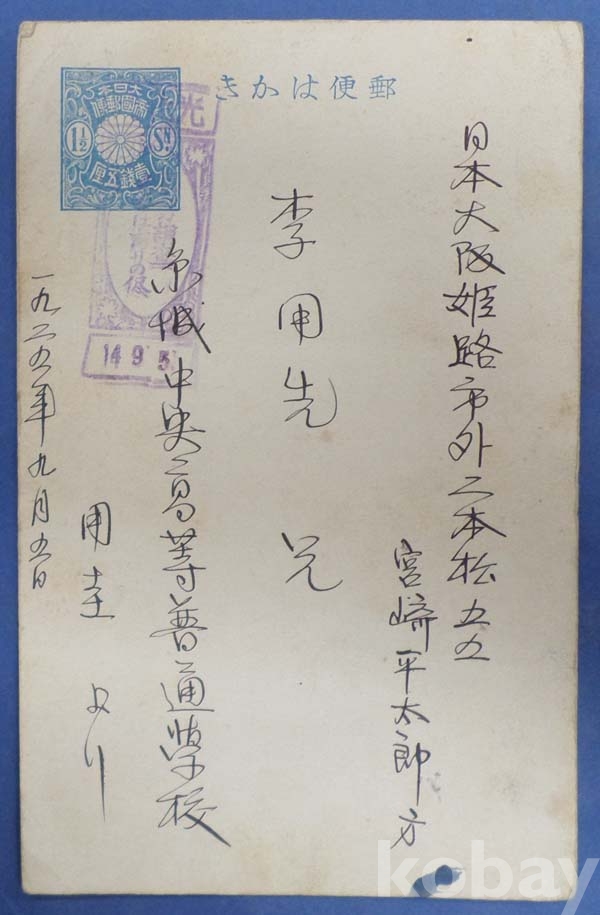 郵便はかき
大日本
帝國郵便
1½ Sn.
壹銭五厘
日本大阪姫路市外二本松五五
宮崎平太郎方
李用先 兄
京城中央高等普通學校
用圭 より
一九二五年九月五日
光
14 9 5
kobay